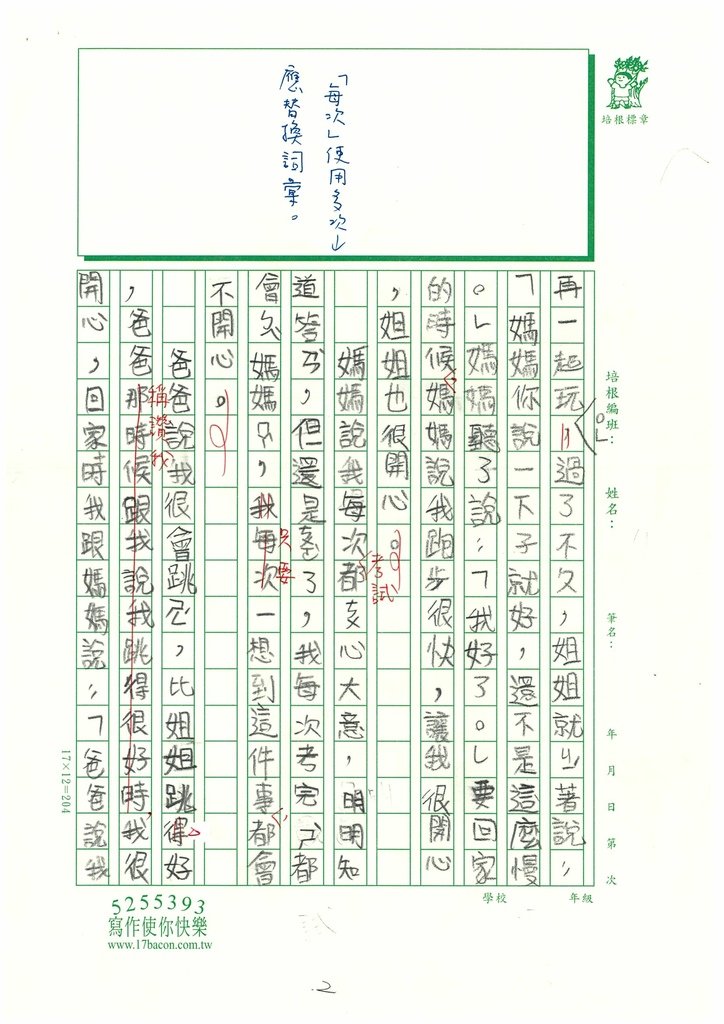 「每次」使用多次
應替換詞彙。
培根標章
培根編班：
姓名：
筆名：
年 月 日 第 次
學校
年級
再一起玩。」過了不久，姐姐就ㄐㄧ著說：
「媽媽你說一下子就好，還不是這麼慢
。」媽媽聽了說：「我好了。」要回家
的時候，媽媽說我跑步很快，讓我很開心
，姐姐也很開心。
媽媽說我每次考試都ㄘㄨ心大意，明明知
道答ㄢˋ，但還是寫了，我每次考完ㄕˋ都
會ㄅㄟˋ媽媽ㄇㄚˋ，我每次只要一想到這件事，都會
不開心。
爸爸說我很會跳ㄨˇ，比姐姐跳得好
，爸爸稱讚我那時候跟我說我跳得很好時，我很
開心，回家時我跟媽媽說：「爸爸說我
17×12=204
5255393
寫作使你快樂
www.17bacon.com.tw
2